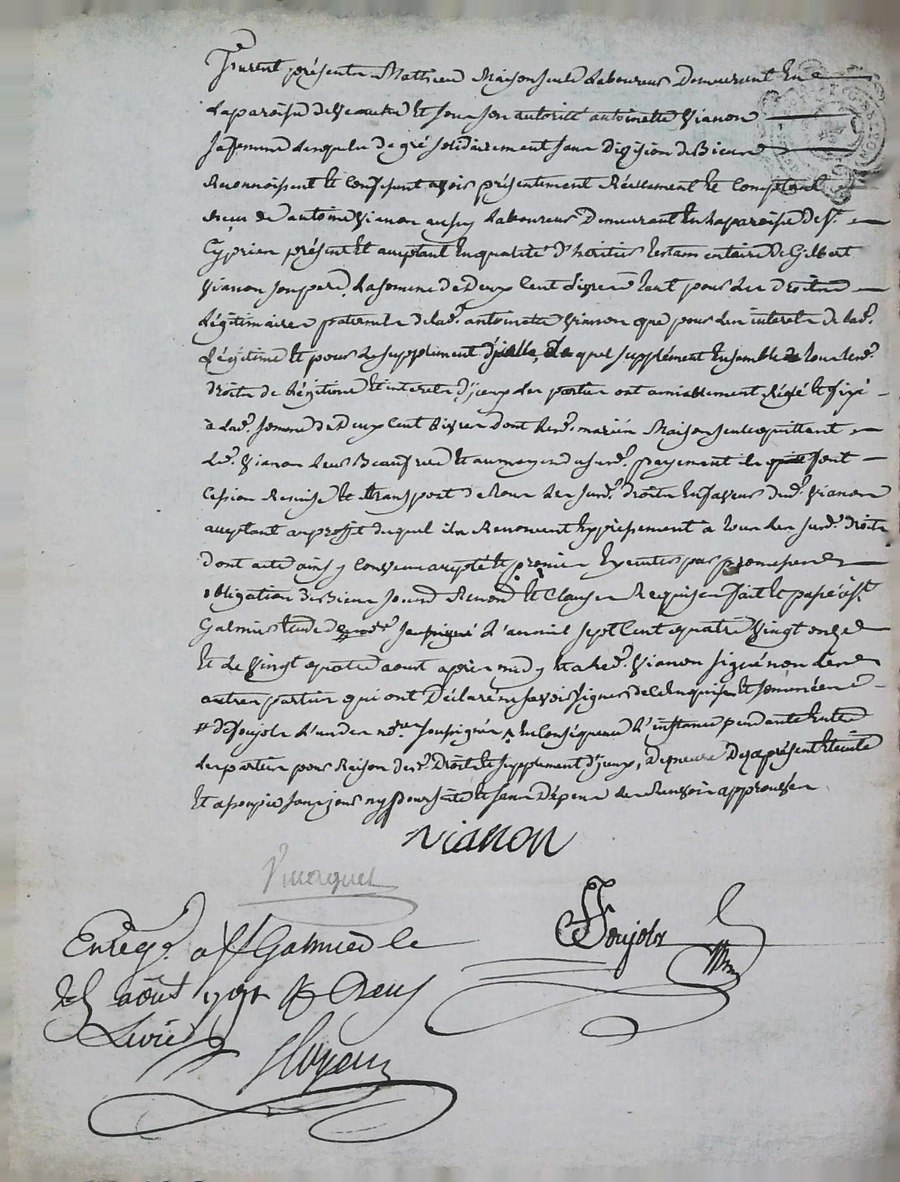 furent présents Mathieu Maisonseule Laboureur Demeurant En
La paroisse de Veauche Et sous son autorité antoinette Vianon
sa femme Lesquels de gré solidairement sans Division de Biens
Reconnoissent Et Confessent avoir présentement Réellement Et Comptant
Reçu de antoine Vianon aussy Laboureur Demeurant En La paroisse de St.
Cyprien présent Et acceptant En qualité d'héritier testamentaire de Gilbert
Vianon son père, La somme de Deux Cent Livres tant pour Les Droits
Légitimaires paternels de lad. antoinette Vianon que pour Les interets de lad.
Légitime Et pour Le supplément d'icelle, Lequel supplément Ensemble tous Lesd.
droits de Légitime Et interets d'yceux Les parties ont amiablement Réglé Et fixé
à lad. somme de Deux Cent Livres dont Lesd. mariés Maisonseule quittent
Led. Vianon Leur Beaufrere Et au moyen dususd. payement font
Cession Remise Et transport de tous Les susd. droits En faveur dud. Vianon
acceptant au profit duquel ils Renoncent Expressement à tous Les susd. droits
dont acte ainsy Convenu accepté Et promis Executer par promesses
obligation de Biens soumd. Renond. Et Clauses Requises fait Et passé à St.
Galmier Etude soussigné L'an mil sept Cent quatre Vingt onze
Et Le Vingt quatre aout après midy Et a Led. Vianon signé non Les
autres parties qui ont Déclaré ne savoir signer de Ce Enquises Et sommées
# de Soujols L'un des nores. soussignés En Conséquence L'instance pendante Entre
Les parties pour Raison desd. Droits Et supplément d'yceux, Demeure Des à présent Eteinte
Et assoupie sans Dépens
Vianon
Enregé. à St Galmier le
25 août 1791 R Deux
Livres
Soujols